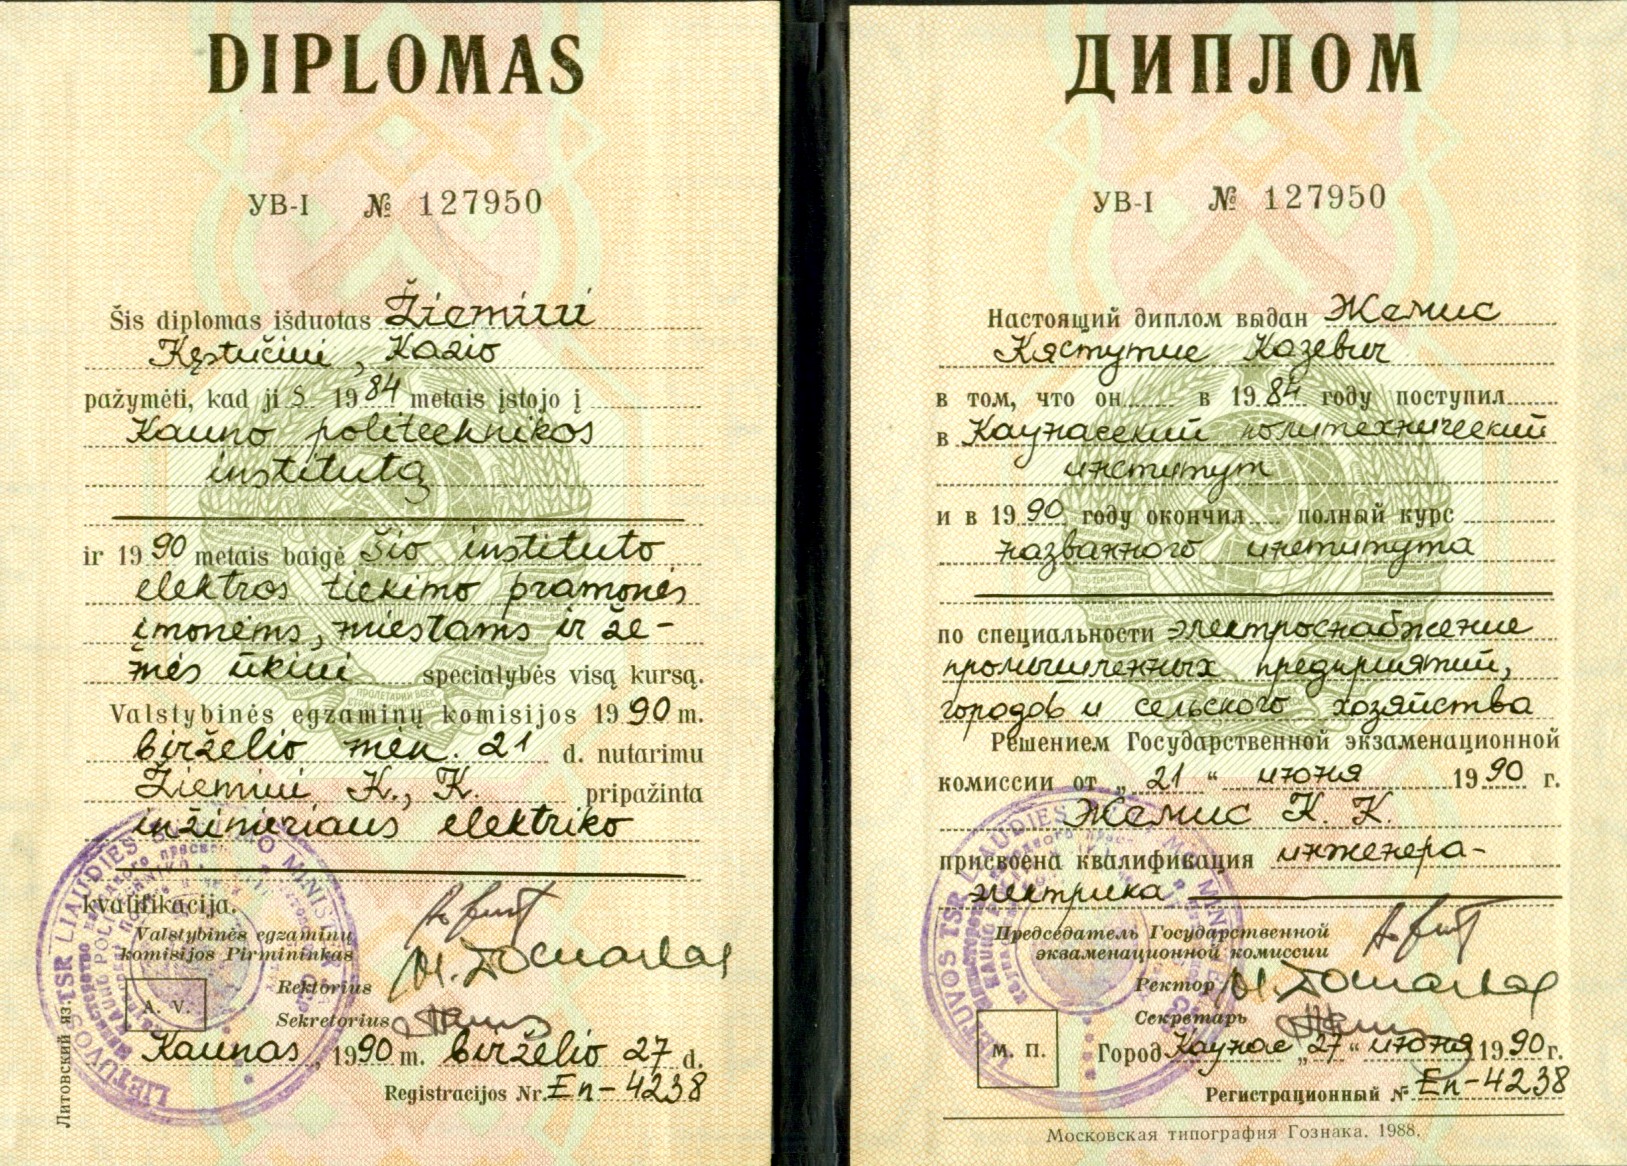 DIPLOMAS
УВ-I № 127950
Šis diplomas išduotas Žiemiui
Kęstučiui, Kazio
pažymėti, kad jis 1984 metais įstojo į
Kauno politechnikos
institutą
ir 1990 metais baigė šio instituto
elektros tiekimo pramonės
įmonėms, miestams ir že-
mės ūkiui specialybės visą kursą.
Valstybinės egzaminų komisijos 1990 m.
birželio mėn. 21 d. nutarimu
Žiemiui K., K. pripažinta
inžinieriaus elektriko
kvalifikacija.
Valstybinės egzaminų
komisijos Pirmininkas
Rektorius
A. V.
Sekretorius
Kaunas, 1990 m. birželio 27 d.
Registracijos Nr. En-4238
Литовский яз.
ДИПЛОМ
УВ-I № 127950
Настоящий диплом выдан Жемис
Кястутис Казевич
в том, что он в 1984 году поступил
в Каунасский политехнический
институт
и в 1990 году окончил полный курс
названного института
по специальности электроснабжение
промышленных предприятий,
городов и сельского хозяйства
Решением Государственной экзаменационной
комиссии от „21“ июня 1990 г.
Жемис К. К.
присвоена квалификация инженера-
электрика
Председатель Государственной
экзаменационной комиссии
Ректор
Секретарь
М. П.
Город Каунас „27“ июня 1990 г.
Регистрационный № En-4238
Московская типография Гознака. 1988.